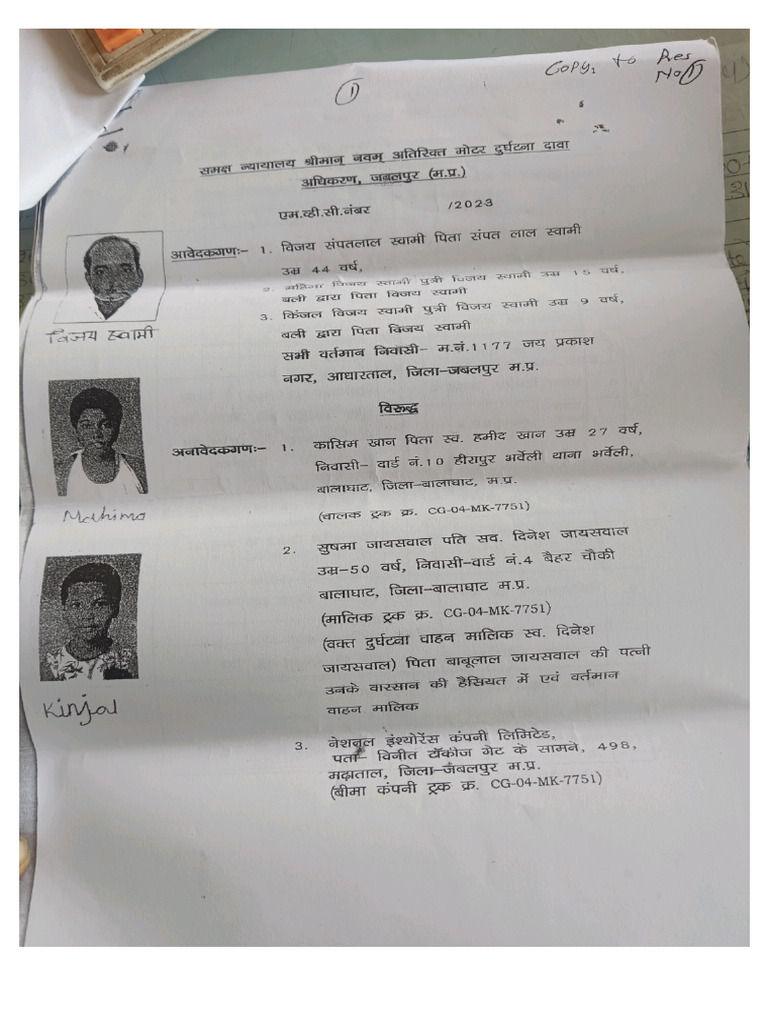 Copy, to Res
No ①
①
समक्ष न्यायालय श्रीमान् नवम् अतिरिक्त मोटर दुर्घटना दावा
अधिकरण, जबलपुर (म.प्र.)
एम.व्ही.सी.नंबर /2023
आवेदकगणः- 1. विजय संपतलाल स्वामी पिता संपत लाल स्वामी
उम्र 44 वर्ष,
2. विजय स्वामी पुत्री विजय स्वामी उम्र 15 वर्ष,
बली द्वारा पिता विजय स्वामी
विजय स्वामी
3. किंजल विजय स्वामी पुत्री विजय स्वामी उम्र 9 वर्ष,
बली द्वारा पिता विजय स्वामी
सभी वर्तमान निवासी- म.नं.1177 जय प्रकाश
नगर, आधारताल, जिला-जबलपुर म.प्र.
विरूद्ध
अनावेदकगणः- 1. कासिम खान पिता स्व. हमीद खान उम्र 27 वर्ष,
निवासी- वार्ड नं.10 हीरापुर भर्वेली थाना भर्वेली,
बालाघाट, जिला-बालाघाट, म.प्र.
(चालक ट्रक क्र. CG-04-MK-7751)
Mahima
2. सुषमा जायसवाल पति सव. दिनेश जायसवाल
उम्र-50 वर्ष, निवासी-वार्ड नं.4 बैहर चौकी
बालाघाट, जिला-बालाघाट म.प्र.
(मालिक ट्रक क्र. CG-04-MK-7751)
(वक्त दुर्घटना वाहन मालिक स्व. दिनेश
जायसवाल) पिता बाबूलाल जायसवाल की पत्नी
उनके वारसान की हैसियत में एवं वर्तमान
वाहन मालिक
Kinjal
3. नेशनल इंश्योरेंस कंपनी लिमिटेड,
पता- विनीत टॉकीज गेट के सामने, 498,
मढ़ाताल, जिला-जबलपुर म.प्र.
(बीमा कंपनी ट्रक क्र. CG-04-MK-7751)